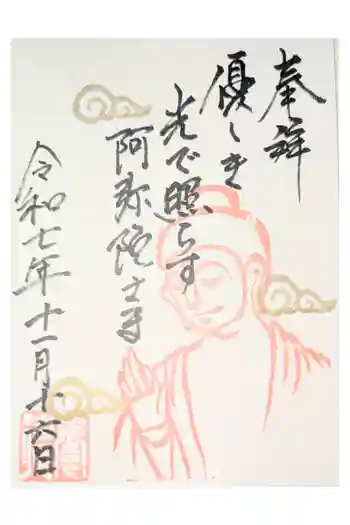 奉拝
優しき
光で照らす
阿弥陀寺
令和七年十一月十六日